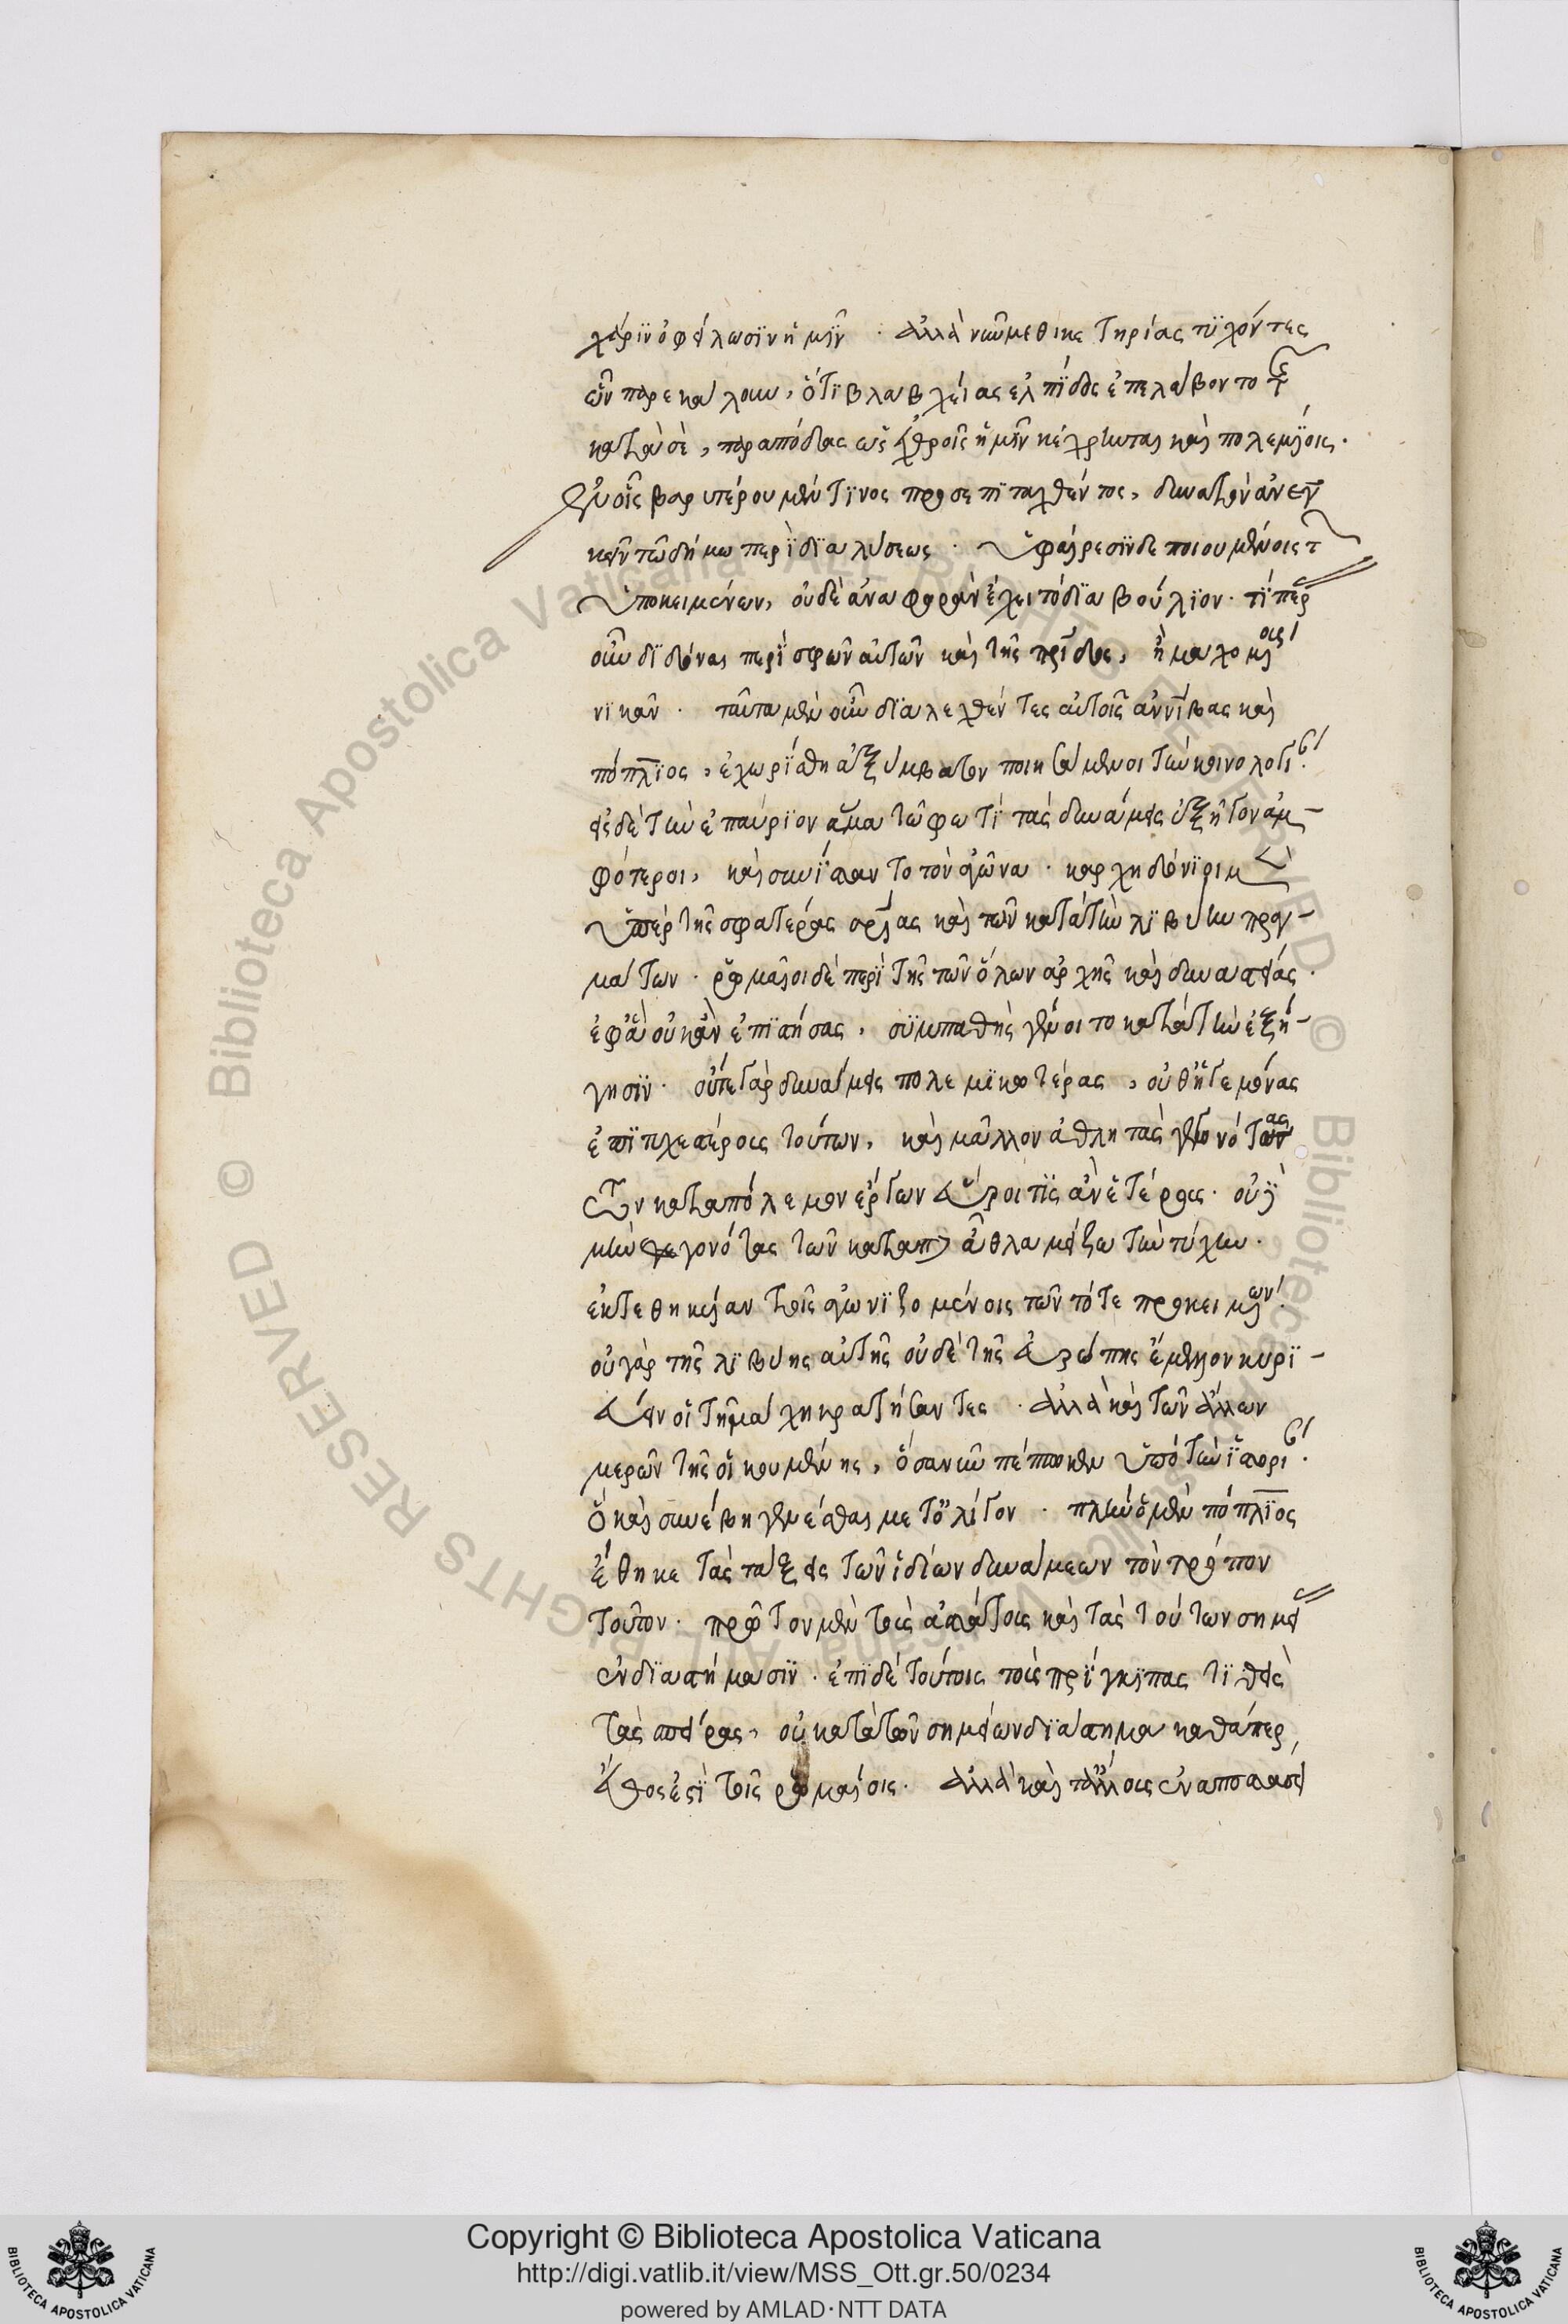 χάριν ὀφείλωσιν ἡμῖν· ἀλλὰ νῦν μεθ' ἱκετηρίας τυχόντες
ὧν παρεκάλουν, ὅτι βραχείας ἐλπίδος ἐπελάβοντο τῆς
κατὰ σὲ, παραπόδας ὡς ἐχθροῖς ἡμῖν κέχρηνται καὶ πολεμίοις.
ἐν οἷς βαρυτέρου μέν τινος προσεπιταχθέντος, δυνατὸν ἀνεν
κεῖν τῷ δήμῳ περὶ διαλύσεως· ὑφαίρεσιν δὲ ποιουμένοις τ
ὑποκειμένων, οὐδὲ ἀναφορὰν ἔχει τὸ διαβούλιον· τί πέρ
οὖν διδόναι περὶ σφῶν αὐτῶν καὶ τῆς πρίδος, ἢ μαχομένοις
νικᾶν· ταῦτα μὲν οὖν διαλεχθέντες αὐτοῖς ἀννίβας καὶ
πόπλιος, ἐχωρίσθησαν ἀξύμβατον ποιησάμενοι τὴν κοινολογίαν.
εἰς δὲ τὴν ἐπαύριον ἅμα τῷ φωτὶ τὰς δυνάμεις ἐξῆγον ἀμ-
φότεροι, καὶ συνίσταντο τὸν ἀγῶνα· καρχηδόνιοι μὲν
ὑπὲρ τῆς σφατέρας σρίας καὶ τῶν κατὰ τὴν λιβύην πραγ-
μάτων· ῥωμαῖοι δὲ περὶ τῆς τῶν ὅλων ἀρχῆς καὶ δυναστείας.
ἐφ' ἃ οὐκ ἂν ἐπιστήσας, συμπαθὴς γένοιτο κατὰ τὴν ἐξή-
γησιν· οὔτε γὰρ δυνάμεις πολεμικωτέρας, οὐθ' ἡγεμόνας
ἐπιπλεστέρους τούτων, καὶ μᾶλλον ἀθλητὰς γεγονότας
τῶν κατὰ πόλεμον ἔργων εὕροι τις ἂν ἑτέρους· οὐδὲ
μὴν γεγονότας τῶν κατὰ π ἆθλα μείζω τὴν τύχην.
ἐκτεθηκείαν τοῖς ἀγωνιζομένοις τῶν τότε προκειμένων.
οὐ γὰρ τῆς λιβύης αὐτῆς οὐδὲ τῆς εὐρώπης ἔμελλον κυρι-
εύειν οἱ τῇ μάχῃ κρατήσαντες· ἀλλὰ καὶ τῶν ἄλλων
μερῶν τῆς οἰκουμένης, ὅσα νῦν πέπτωκεν ὑπὸ τὴν ἱστορίαν.
ὃ καὶ συνέβη γενέσθαι μετ' ὀλίγον· πλὴν ὁ μὲν πόπλιος
ἔθηκε τὰς τάξεις τῶν ἰδίων δυνάμεων τὸν τρόπον
τοῦτον· πρῶτον μὲν τοὺς ἀστάτους καὶ τὰς τούτων σημείας
ἐν διαστήμασιν· ἐπὶ δὲ τούτοις τοὺς πρίγκιπας τιθεὶς
τὰς σπείρας, οὐ κατὰ τὸ τῶν σημείων διάστημα καθάπερ
ἔθος ἐστὶ τοῖς ῥωμαίοις· ἀλλὰ καὶ ταλλήλους ἐν ἀποστάσει